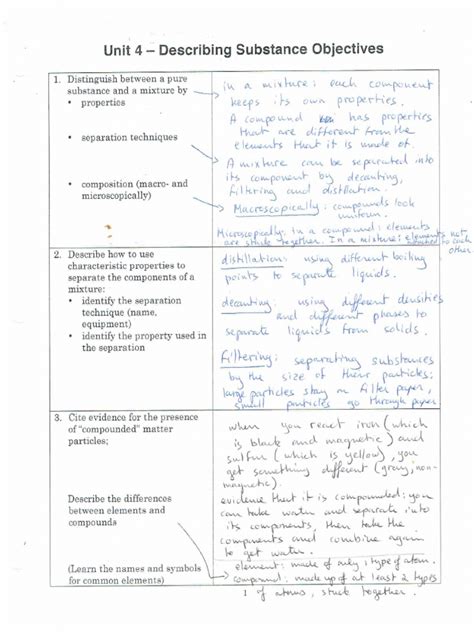 Unit 4 – Describing Substance Objectives
1. Distinguish between a pure
substance and a mixture by
• properties
• separation techniques
• composition (macro- and
microscopically)
in a mixture: each component
keeps its own properties.
A compound has properties
that are different from the
elements that it is made of.
A mixture can be separated into
its component by decanting,
filtering and distillation.
Macroscopically: compounds look
uniform.
Microscopically. In a compound: elements
are stuck together. In a mixture: elements not
attached to each
other.
2. Describe how to use
characteristic properties to
separate the components of a
mixture:
• identify the separation
technique (name,
equipment)
• identify the property used in
the separation
distillation: using different boiling
points to separate liquids.
decanting: using different densities
and different phases to
separate liquids from solids.
Filtering: separating substances
by the size of their particles:
large particles stay in filter paper,
small particles go through paper.
3. Cite evidence for the presence
of "compounded" matter
particles;
Describe the differences
between elements and
compounds
(Learn the names and symbols
for common elements)
when you react iron (which
is black and magnetic) and
sulfur (which is yellow), you
get something different (gray, non-
magnetic).
evidence that it is compounded: you
can take water and separate into
its components, then take the
components and combine again
to get water.
element: made of only 1 type of atom.
compound: made up of at least 2 types
of atoms, stuck together.
1